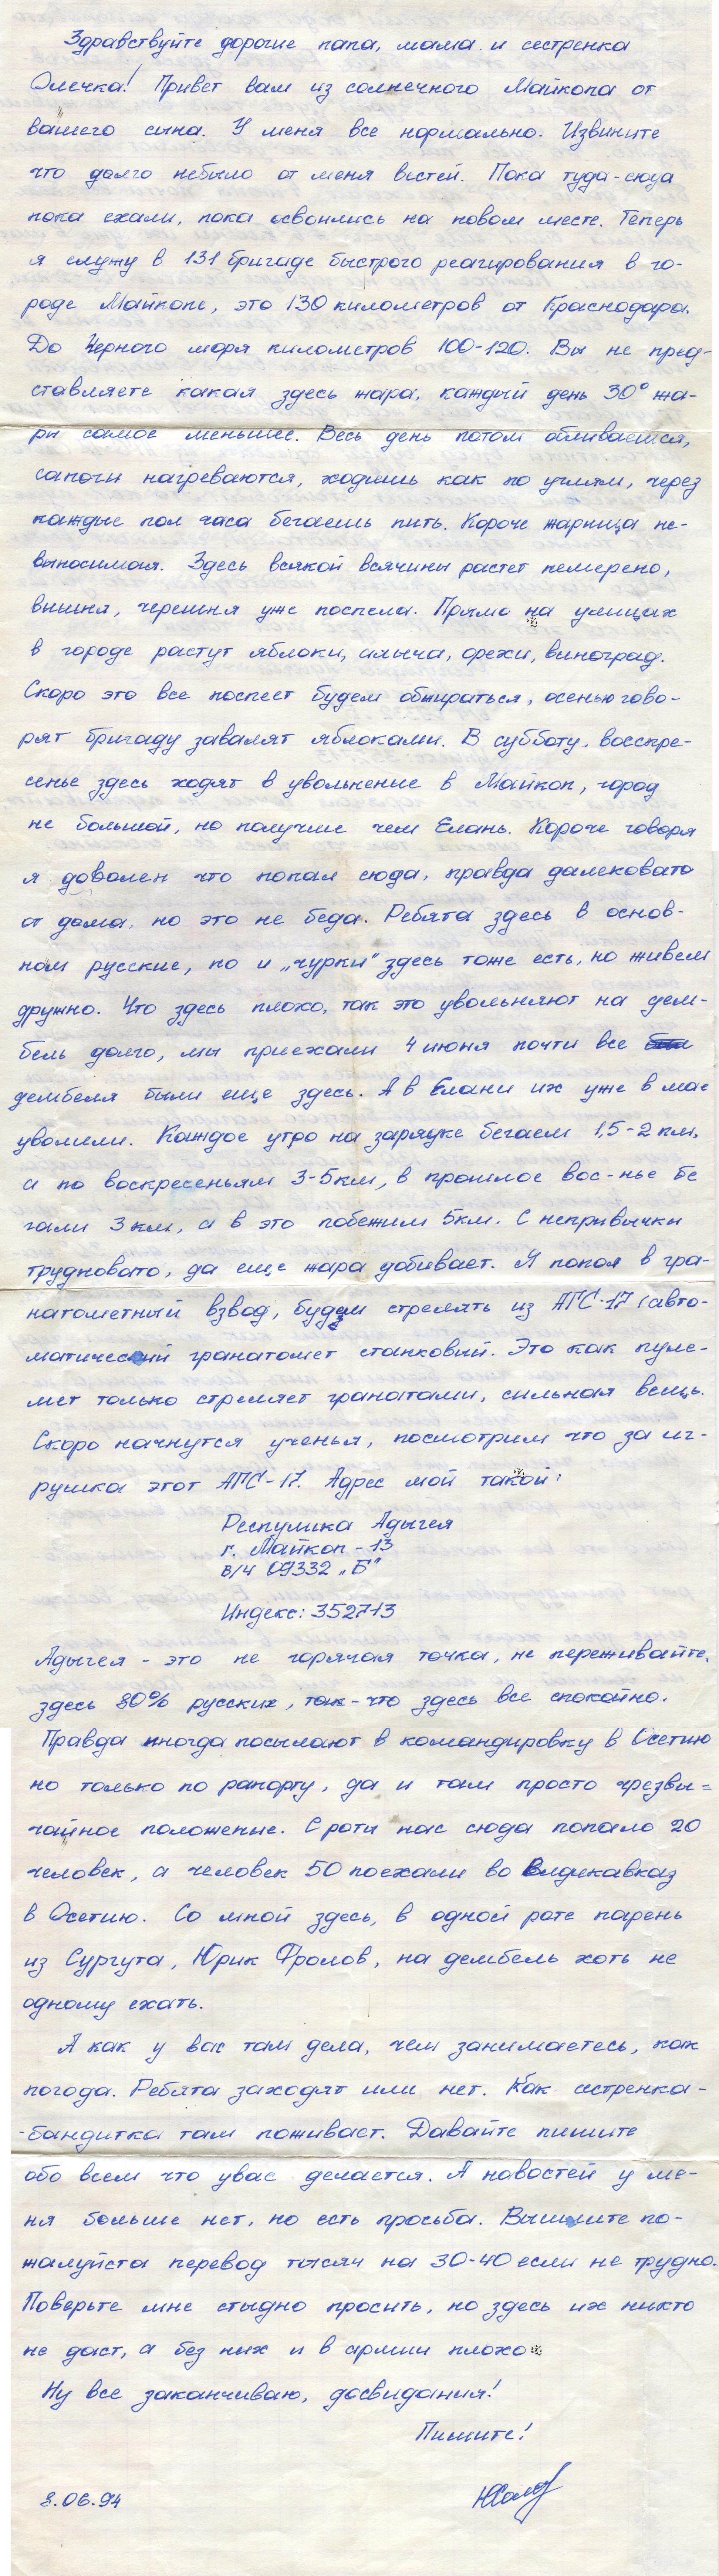 Здравствуйте дорогие папа, мама и сестренка
Олечка! Привет вам из солнечного Майкопа от
вашего сына. У меня все нормально. Извините
что долго небыло от меня вестей. Пока туда-сюда
пока ехали, пока освоились на новом месте. Теперь
я служу в 131 бригаде быстрого реагирования в го-
роде Майкопе, это 130 километров от Краснодара.
До Черного моря километров 100-120. Вы не пред-
ставляете какая здесь жара, каждый день 30° жа-
ры самое меньшее. Весь день потом обливаешся,
сапоги нагреваются, ходишь как по углям, через
каждые пол часа бегаешь пить. Короче жарища не-
выносимая. Здесь всякой всячины растет немерено,
вишня, черешня уже поспела. Прямо на улицах
в городе растут яблоки, алыча, орехи, виноград.
Скоро это все поспеет будем обжираться, осенью гово-
рят бригаду завалят яблоками. В субботу, восскре-
сенье здесь ходят в увольнение в Майкоп, город
не большой, но получше чем Елань. Короче говоря
я доволен что попал сюда, правда далековато
от дома, но это не беда. Ребята здесь в основ-
ном русские, но и „чурки" здесь тоже есть, но живем
дружно. Что здесь плохо, так это увольняют на дем-
бель долго, мы приехали 4 июня почти все
дембеля были еще здесь. А в Елани их уже в мае
уволили. Каждое утро на зарядке бегаем 1,5-2 км,
а по воскресеньям 3-5км, в прошлое вос-нье бе
гали 3 км, а в это побежим 5км. С непривычки
трудновато, да еще жара убивает. Я попал в гра-
натометный взвод, будем стрелять из АГС-17 (авто-
матический гранатомет станковый. Это как пуле-
мет только стреляет гранатами, сильная вещь.
Скоро начнутся ученья, посмотрим что за иг-
рушка этот АГС-17. Адрес мой такой:
Респулика Адыгея
г. Майкоп - 13
в/ч 09332 „Б"
Индекс: 352713
Адыгея - это не горячая точка, не переживайте,
здесь 80% русских, так-что здесь все спокойно.
Правда иногда посылают в командировку в Осетию
но только по рапорту, да и там просто чрезвы-
чайное положенье. С роты нас сюда попало 20
человек, а человек 50 поехали во Владикавказ
в Осетию. Со мной здесь, в одной роте парень
из Сургута, Юрик Фролов, на дембель хоть не
одному ехать.
А как у вас там дела, чем занимаетесь, как
погода. Ребята заходят или нет. Как сестренка-
-бандитка там поживает. Давайте пишите
обо всем что увас делается. А новостей у ме-
ня больше нет, но есть просьба. Вышлите по-
жалуйста перевод тысяч на 30-40 если не трудно.
Поверьте мне стыдно просить, но здесь их никто
не даст, а без них и в армии плохо
Ну все заканчиваю, досвидания!
Пишите!
8.06.94